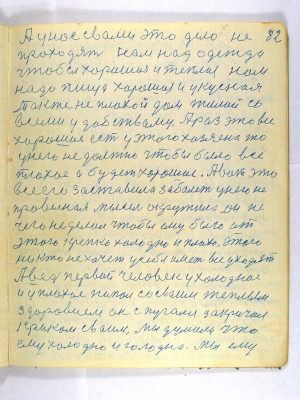 А у нас с вами это дело не 82
проходят нам над одежда
чтобы хорошая и теплая нам
надо пища хорошая и укусная
также не плохой дом жилой со
всеми удобствами. А раз это все
хорошая ест у этого хозяена то
у него не должно чтобы было все
плохое а будет хорошае. А вот это
все его заставила заболет у него не
провелная мысел окружила он не
чего неделал чтобы ему было от
этого крепко холодно и плохо. Этого
никто не хочет у себя имет все уходят
А вед первой человек у холодное
и у плохое попал со своим теплым
здоровием он с пугали закричал
криком своим, мы думали что
ему холодно и голодно. Мы ему